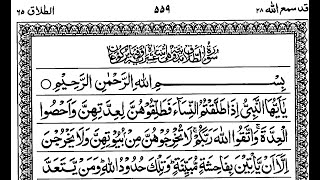 قد سمع الله ٢٨
٥٥٩
الطلاق ٦٥
سُوْرَةُ الطَّلَاقِ مَدَنِيَّةٌ
بِسْمِ اللهِ الرَّحْمٰنِ الرَّحِيْمِ ○
يٰۤاَيُّهَا النَّبِيُّ اِذَا طَلَّقْتُمُ النِّسَآءَ فَطَلِّقُوْهُنَّ لِعِدَّتِهِنَّ وَاَحْصُوا
الْعِدَّةَ ۚ وَاتَّقُوا اللهَ رَبَّكُمْ ۚ لَا تُخْرِجُوْهُنَّ مِنْۢ بُيُوْتِهِنَّ وَلَا يَخْرُجْنَ
اِلَّاۤ اَنْ يَّاْتِيْنَ بِفَاحِشَةٍ مُّبَيِّنَةٍ ؕ وَتِلْكَ حُدُوْدُ اللهِ ؕ وَمَنْ يَّتَعَدَّ